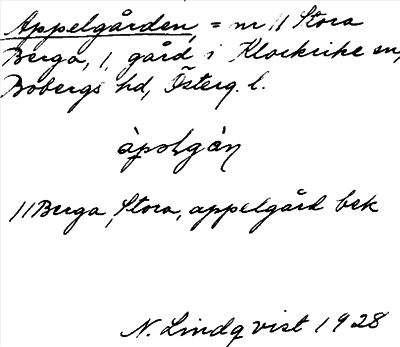 Appelgården, = nr 11 Stora
Berga, 1, gård i Klockrike sn,
Bobergs hd, Österg. l.
àpolgàɳ
11 Berga, Stora, appelgård bek
N. Lindqvist 1928